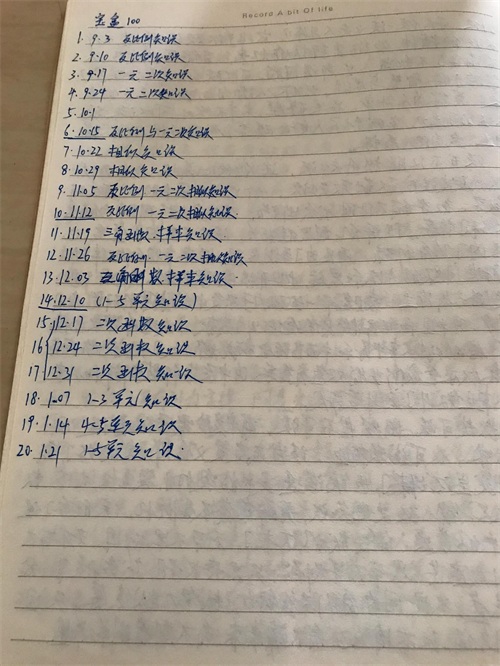 Record A bit Of life
宝盒 100
1. 9.3 反比例知识
2. 9.10 反比例知识
3. 9.17 一元二次知识
4. 9.24 一元二次知识
5. 10.1
6. 10.15 反比例与一元二次知识
7. 10.22 相似知识
8. 10.29 相似知识
9. 11.05 反比例 一元二次相似知识
10. 11.12 反比例 一元二次相似知识.
11. 11.19 三角函数.样本知识.
12. 11.26 反比例 一元二次相似知识.
13. 12.03 三角函数 样本知识.
14. 12.10 (1-5单元知识)
15. 12.17 二次函数知识
16 12.24 二次函数知识
17 12.31 二次函数知识
18. 1.07 1-3单元知识
19. 1.14 4-5单元知识
20. 1.21 1-5单元知识.